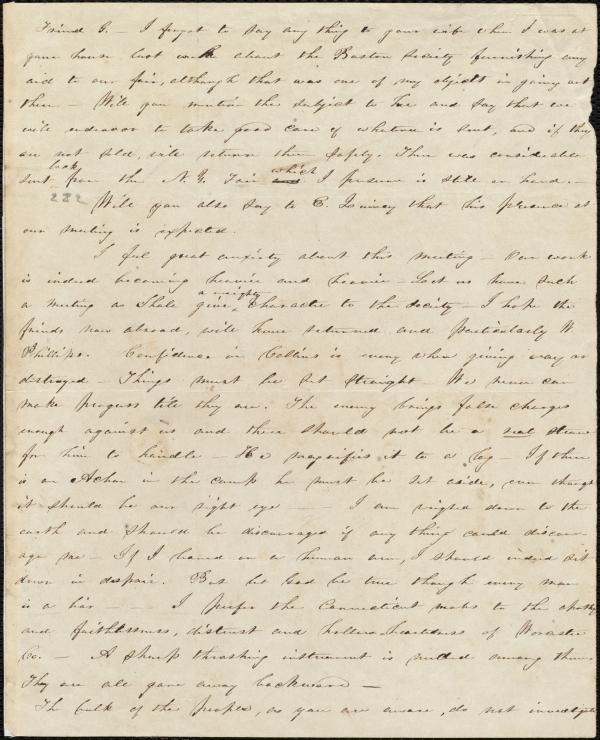 Friend G. — I forgot to say any thing to your wife when I was at
your house last week about the Boston Society furnishing any
aid to our fair, although that was one of my objects in going out
there — Will you mention the subject to her and say that we
will endeavor to take good care of whatever is sent, and if they
are not sold, will return them safely. There was considerable
sent back from the N. Y. Fair which I presume is still on hand. —
222
Will you also say to E. Quincy that his presence at
our meeting is expected.
I feel great anxiety about this meeting — Our work
is indeed becoming heavier and heavier — Let us have such
a meeting as shall give a weighty character to the society — I hope the
friends now abroad, will have returned and particularly W
Phillips. Confidence in Collins is every where giving way or
destroyed — Things must be set straight — We never can
make progress till they are. The enemy brings false charges
enough against us and there should not be a real straw
for him to handle — He magnifies it to a log — If there
is an Achan in the camp he must be set aside, even though
it should be our right eye — — I am weighed down to the
earth and should be discouraged if any thing could discour-
age me — If I leaned on a human arm, I should indeed sit
down in despair. But let God be true though every man
is a liar — — I prefer the Connecticut mobs to the apathy
and faithlessness, distrust and hollow-heartedness of Worcester
Co. — A sharp thrashing instrument is needed among them
They are all gone away backward —
The bulk of the people, as you are aware, do not investigate